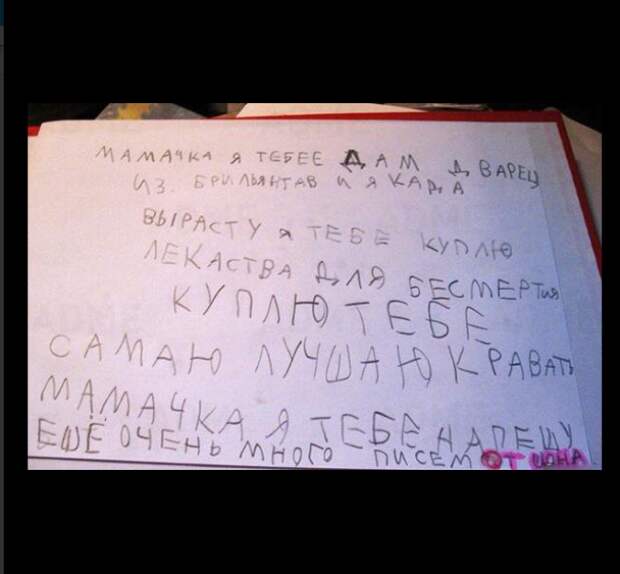 МАМАЧКА Я ТЕБЕЕ ДАМ ДВАРЕЦ
ИЗ. БРИЛЬЯНТАВ И Я КАДА
ВЫРАСТУ Я ТЕБЕ КУПЛЮ
ЛЕКАСТВА ДЛЯ БЕСМЕРТИЯ
КУПЛЮ ТЕБЕ
САМАЮ ЛУЧШАЮ КРАВАТЬ
МАМАЧКА Я ТЕБЕ НАПЕШУ
ЕЩЁ ОЧЕНЬ МНОГО ПИСЕМ ОТ